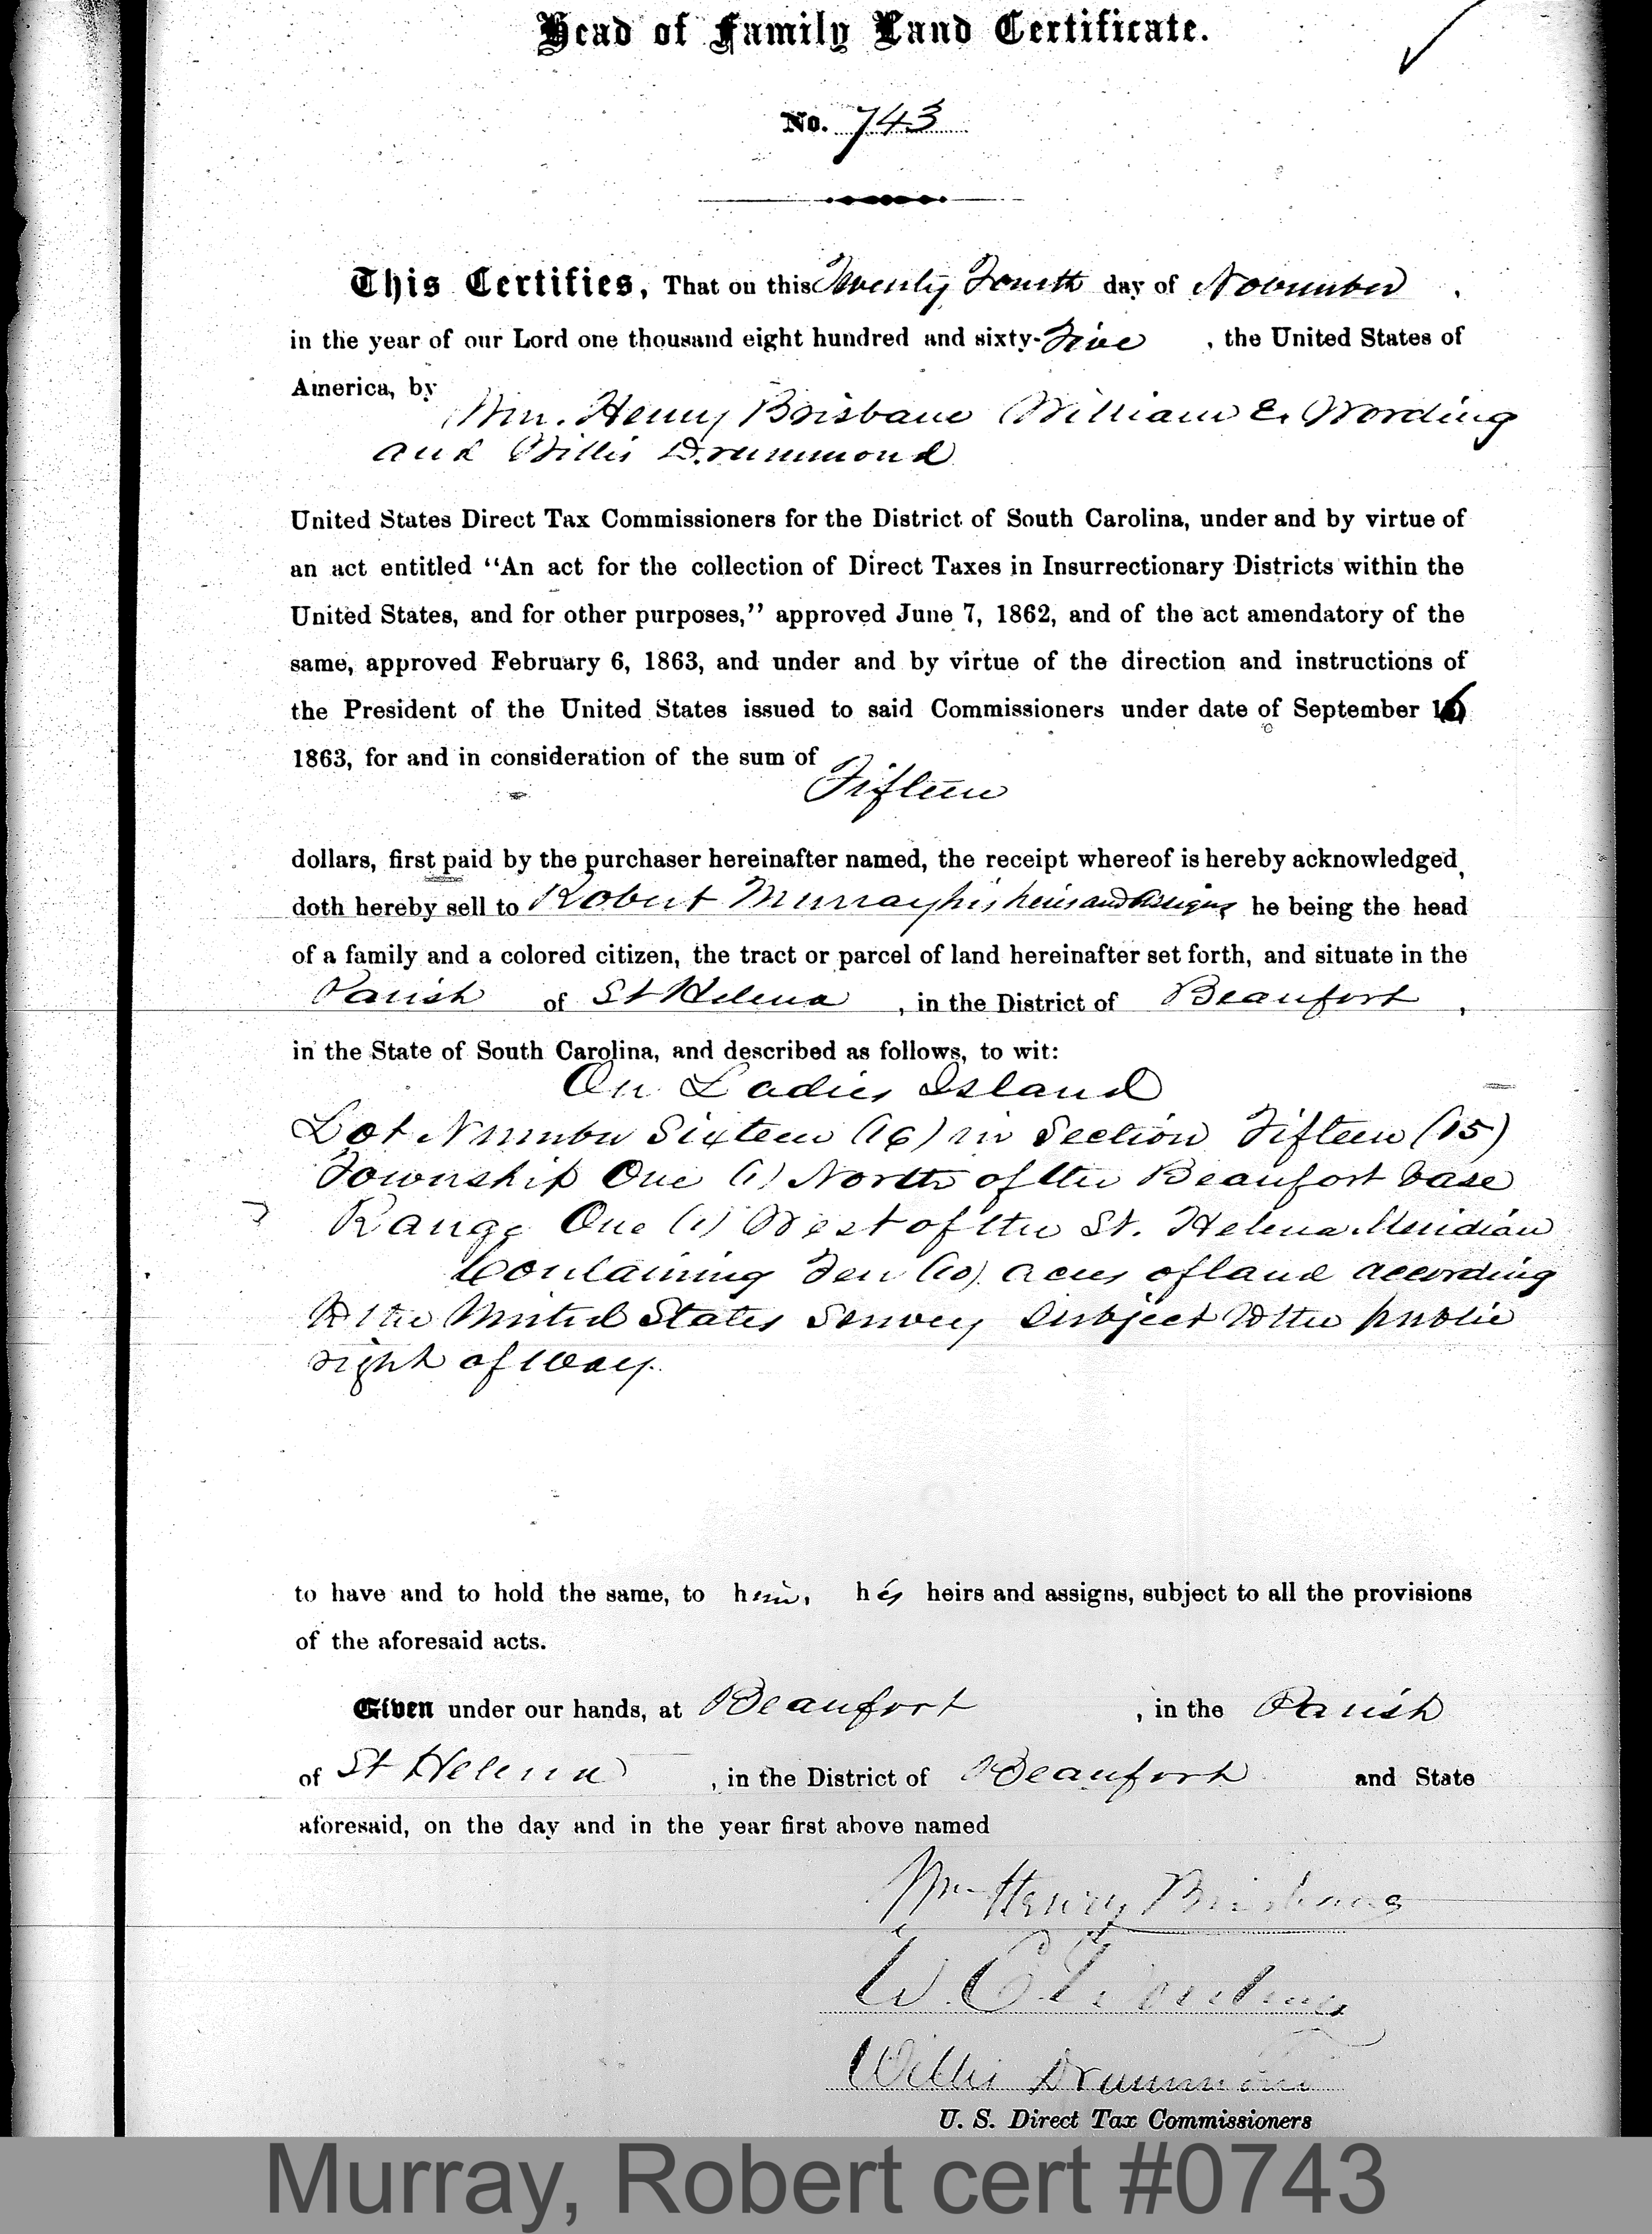 Head of Family Land Certificate.
No. 743
This Certifies, That on this Twenty Fourth day of November,
in the year of our Lord one thousand eight hundred and sixty-Five, the United States of
America, by
Wm. Henry Brisbane William E. Wording
and Willis Drummond
United States Direct Tax Commissioners for the District of South Carolina, under and by virtue of
an act entitled "An act for the collection of Direct Taxes in Insurrectionary Districts within the
United States, and for other purposes," approved June 7, 1862, and of the act amendatory of the
same, approved February 6, 1863, and under and by virtue of the direction and instructions of
the President of the United States issued to said Commissioners under date of September 16
1863, for and in consideration of the sum of
Fifteen
dollars, first paid by the purchaser hereinafter named, the receipt whereof is hereby acknowledged,
doth hereby sell to Robert Murray his heirs and assigns he being the head
of a family and a colored citizen, the tract or parcel of land hereinafter set forth, and situate in the
Parish of St Helena, in the District of Beaufort,
in the State of South Carolina, and described as follows, to wit:
On Ladies Island
Lot Number Sixteen (16) in Section Fifteen (15)
Township One (1) North of the Beaufort base
Range One (1) West of the St. Helena Meridian
Containing Ten (10) acres of land according
to the United States Survey Subject to the public
right of Way.
to have and to hold the same, to him, his heirs and assigns, subject to all the provisions
of the aforesaid acts.
Given under our hands, at Beaufort, in the Parish
of St Helena, in the District of Beaufort and State
aforesaid, on the day and in the year first above named
Wm Henry Brisbane
W. E. Wording
Willis Drummond
U. S. Direct Tax Commissioners
Murray, Robert cert #0743